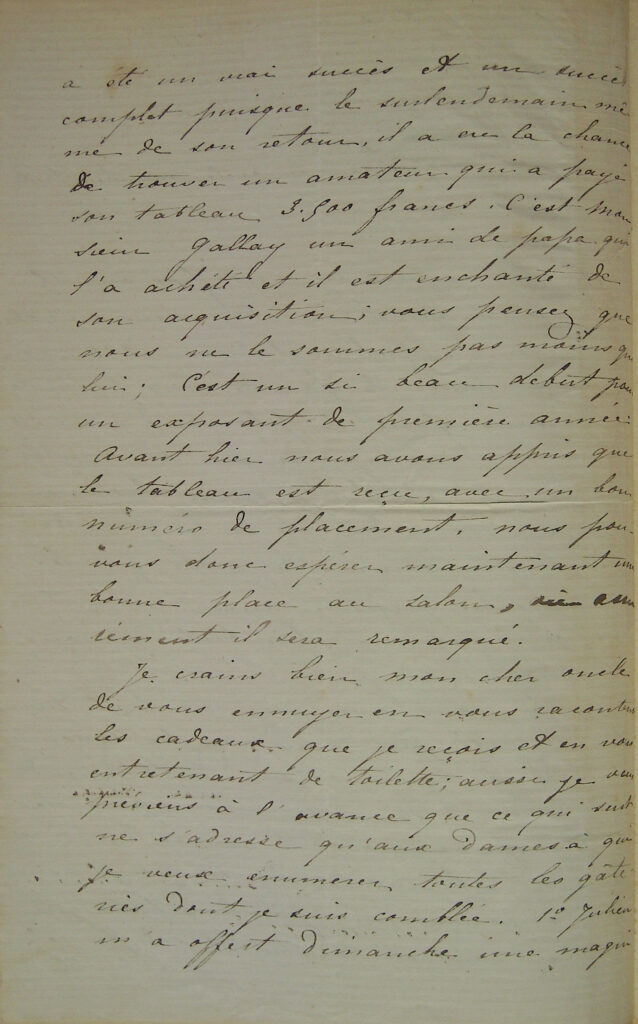 a été un vrai succès et un succès
complet puisque le surlendemain mê
me de son retour, il a eu la chance
de trouver un amateur qui a payé
son tableau 3.500 francs. C'est Mon
sieur Gallay un ami de papa qui
l'a achété et il est enchanté de
son acquisition; vous pensez que
nous ne le sommes pas moins que
lui; C'est un si beau debut pour
un exposant de première année.
Avant hier nous avons appris que
le tableau est reçu, avec un bon
numéro de placement. nous pou
vons donc espérer maintenant une
bonne place au salon,
il sera remarqué.
Je crains bien mon cher oncle
de vous ennuyer en vous racontant
les cadeaux que je reçois et en vous
entretenant de toilette; aussi je vous
préviens à l'avance que ce qui suit
ne s'adresse qu'aux Dames à qui
je veux enumerer toutes les gâte
ries dont je suis comblée. 1o Julien
m'a offert Dimanche une magni